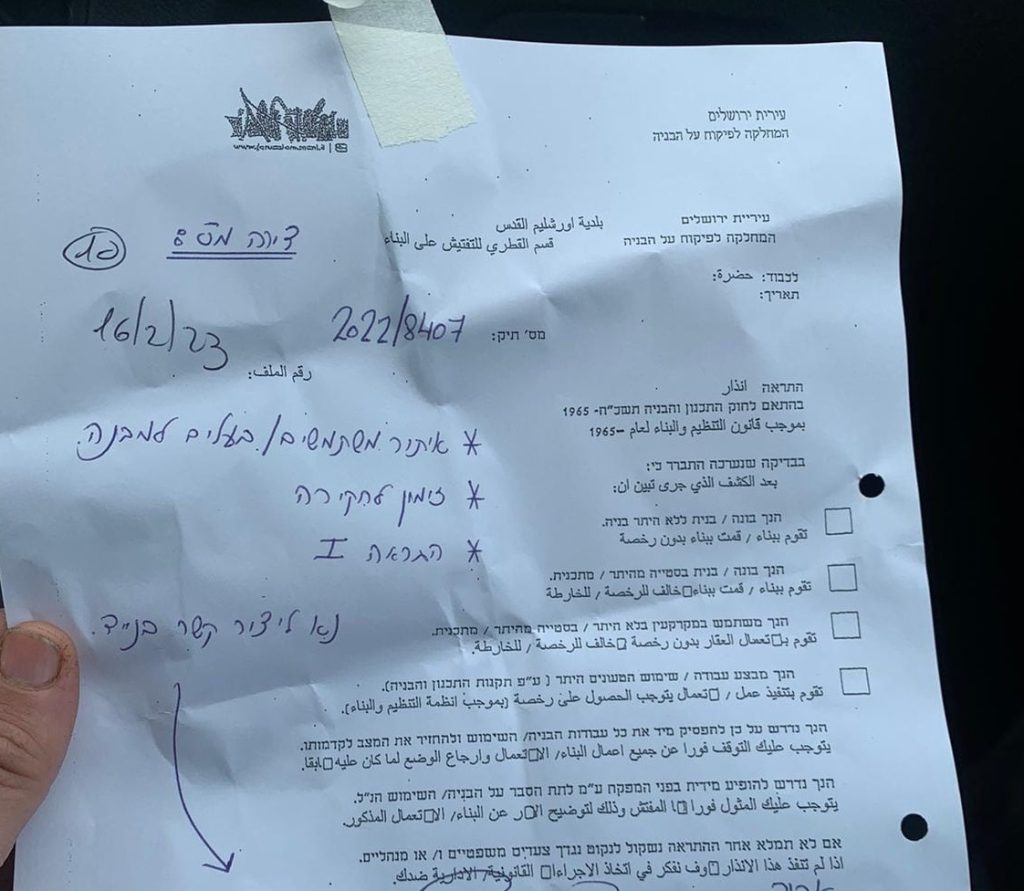 www.jerusalem.muni.il
עירית ירושלים
המחלקה לפיקוח על הבניה
עיריית ירושלים
המחלקה לפיקוח על הבניה
بلدية اورشليم القدس
قسم القطري للتفتيش على البناء
דירה מס 8
לכבוד: حضرة:
תאריך:
מס' תיק: 2022/8407
16/2/23
رقم الملف:
התראה انذار
בהתאם לחוק התכנון והבניה תשכ"ה- 1965
بموجب قانون التنظيم والبناء لعام –1965
* איתור משתמשים/בעלים למבנה.
* זימון לחקירה
* התראה I
נא ליצור קשר בנייד.
בבדיקה שנערכה התברר כי:
بعد الكشف الذي جرى تبين ان:
הנך בונה / בנית ללא היתר בניה.
تقوم ببناء / قمت ببناء بدون رخصة
הנך בונה / בנית בסטייה מהיתר / מתכנית.
تقوم ببناء / قمت ببناء□خالف للرخصة / للخارطة
הנך משתמש במקרקעין בלא היתר / בסטייה מהיתר / מתכנית.
تقوم ب□تعمال العقار بدون رخصة □خالف للرخصة / للخارطة.
הנך מבצע עבודה / שימוש הטעונים היתר ( ע"פ תקנות התכנון והבניה).
تقوم بتنفيذ عمل / □تعمال يتوجب الحصول على رخصة (بموجب انظمة التنظيم والبناء).
הנך נדרש על כן להפסיק מיד את כל עבודות הבניה/ השימוש ולהחזיר את המצב לקדמותו.
يتوجب عليك التوقف فورا عن جميع اعمال البناء/ الا□تعمال وارجاع الوضع لما كان عليه □ابقا.
הנך נדרש להופיע מידית בפני המפקח ע"מ לתת הסבר על הבניה/ השימוש הנ"ל.
يتوجب عليك المثول فورا □ا المفتش وذلك لتوضيح الا□ر عن البناء/ الا□تعمال المذكور.
אם לא תמלא אחר ההתראה נשקול לנקוט נגדך צעדים משפטיים ו/ או מנהליים.
اذا لم تنفذ هذا الانذار □وف نفكر في اتخاذ الاجراءا□ القانونية/ الادارية ضدك.